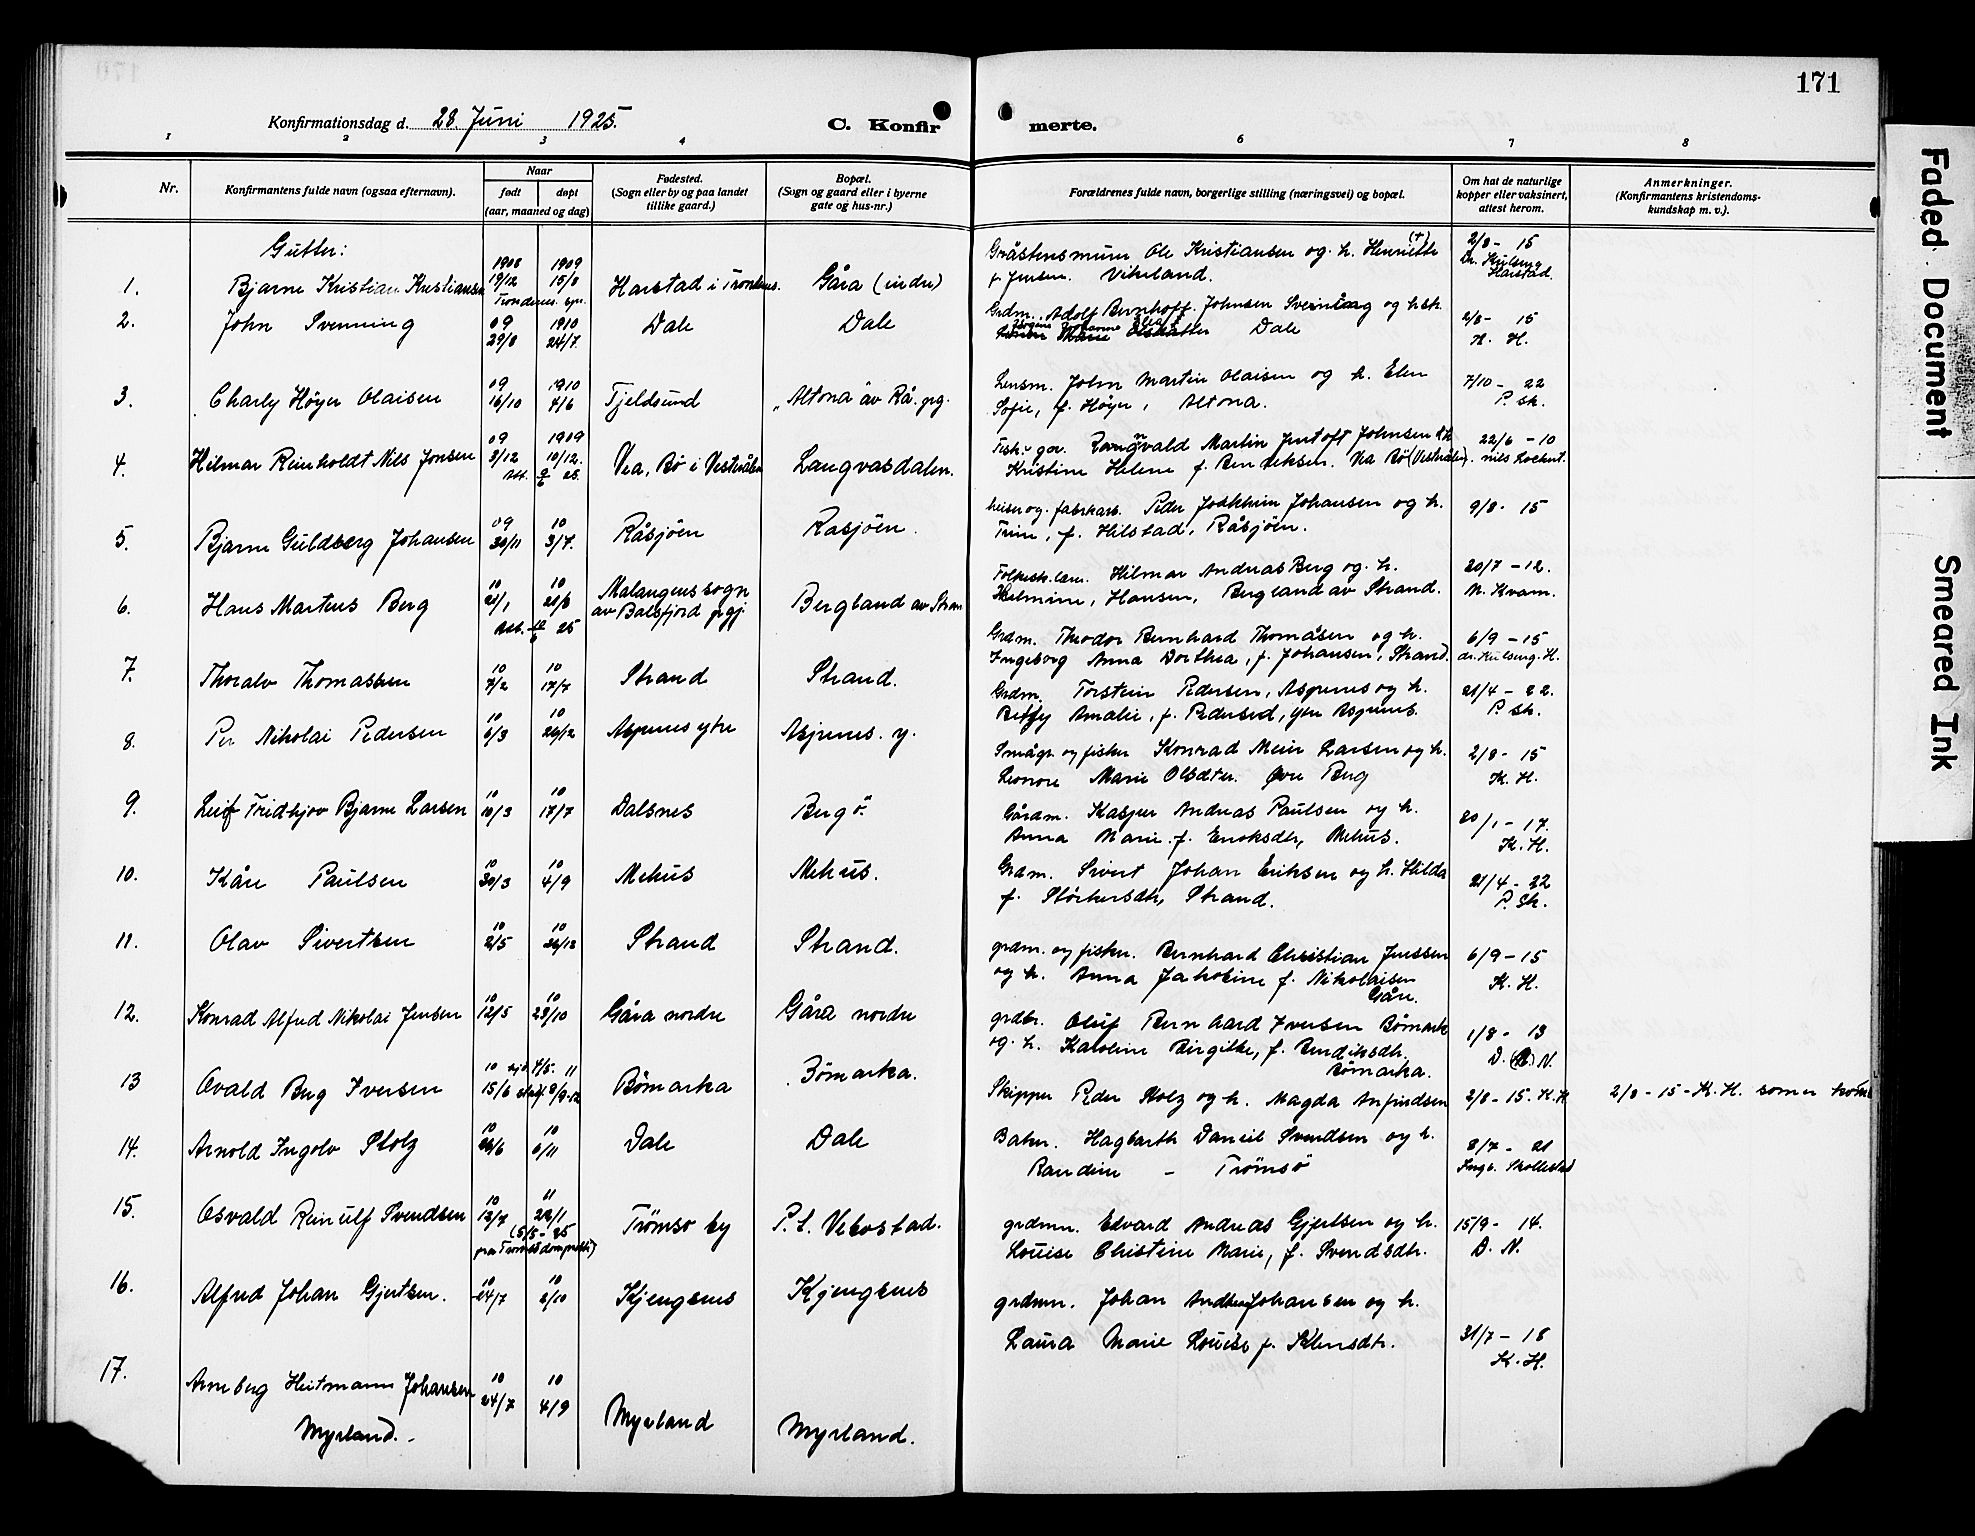 171
Konfirmationsdag d. 28. Juni 1925.
C. Konfirmerte.
1 2 3 4 6 7 8
Nr.
Konfirmantens fulde navn (ogsaa efternavn).
Naar
født
døpt
(aar, maaned og dag)
Fødested.
(Sogn eller by og paa landet
tillike gaard.)
Bopæl.
(Sogn og gaard eller i byerne
gate og hus-nr.)
Forældrenes fulde navn, borgerlige stilling (næringsvei) og bopæl.
Om hat de naturlige
kopper eller vaksinert,
attest herom.
Anmerkninger.
(Konfirmantens kristendoms-
kundskap m. v.).
Gutter:
1. Bjarne Kristian Kristiansen 1908 19/12 1909 15/8 Harstad i Trondenes. Gåra (indre)
Gråstensmurer Ole Kristiansen og h. Henriette (+)
f. Jensen. Vikeland.
2/8 - 15
Harstad.
2. John Svenning 09 29/8 1910 24/7. Dale Dale
Grdm. Adolf Bernhoff Johnsen og
Dale
2/8 - 15
K. H.
3. Charly Höyer Olaisen 09 16/10 1910 4/6 Tjeldsund Altona av Rå. prg.
Lensm. John Martin Olaisen og h. Elen
Sofie, f. Höyer, Altona.
7/10 - 22
P. Sk.
4. Hilmar Reinholdt Nils Jonsen 09 3/12 1909 10/12. Vea, Bø i Vesterålen Langvasdalen.
Martin Johnsen
Kristine Helene f. Bendiksen. Vea Bø (Vesterålen).
22/6 - 10
5. Bjarne Guldberg Johansen 09 30/11 10 3/7. Råsjöen Rasjöen.
Peder Joakkim Johansen og h.
Trine, f. Hilstad, Råsjöen.
9/8 - 15
6. Hans Martens Berg 10 21/1 10 21/8 Malangens sogn
av Balsfjord prgj. Bergland av Stran
Att. 25
Folkesk.lær. Hilmar Andreas Berg og h.
Helmine, Hansen, Bergland av Strand.
20/7 - 12.
N. Kvam.
7. Thoralv Thomassen 10 7/2 10 17/7 Strand Strand.
Grdm. Theodor Bernhard Thomåsen og h.
Ingeborg Anna Dorthea, f. Johansen, Strand.
6/9 - 15
8. Per Nikolai Pedersen 10 6/3 10 26/12 Aspenes ytre Aspenes. y.
Grdm. Torstein Pedersen, Aspenes og h.
Betzy Amalie, f. Pedersed, ytre Aspenes.
21/4 - 22.
P. Sk.
9. Leif Fridhjov Bjarne Larsen 10 10/3 10 17/7 Dalsnes Berg ö.
Smågr. og fisker Konrad Meier Larsen og h.
Leonore Marie Olsdter. Øvre Berg
2/8 - 15
K. H.
10. Kåre Paulsen 10 30/3 10 4/9 Mehus Mehus.
Gårdm. Kasper Andreas Paulsen og h.
Anna Marie f. Enoksdtr, Mehus.
20/1 - 17.
K. H.
11. Olav Sivertsen 10 2/5 10 26/12 Strand Strand.
Grdm. Sivert Johan Eriksen og h. Hilda
f. Störkersdtr, Strand.
21/4 - 22
P. Sk.
12. Konrad Alfred Nikolai Jensen 10 12/5 10 23/10 Gåra nordre Gåra nordre
grdm. og fisker. Bernhard Christian Jenssen
og h. Anna Jakobine f. Nikolaisen
Gåre.
6/9 - 15
K. H.
13 Ovald Berg Iversen 10 15/6 Bömarka Bömarka.
grdbr. Oluf Bernhard Iversen Bömark
og h. Karoline Birgitte, f. Bendiksdtr.
Bömarka.
1/8 - 13
14. Arnold Ingolv Stolz 10 26/6 10 6/11 Dale Dale
Skipper Peder Stolz og h. Magda Anfindsen
2/8 - 15. K. H
2/8 - 15 - K. H.
15. Osvald Reinulf Svendsen 10 13/7 11 22/1 Trömsö by P. t. Vebostad.
Baker. Hagbarth Daniel Svendsen og h.
Randine - Trömsö
8/7 - 21
16. Alfred Johan Gjertsen. 10 24/7 10 2/10 Kjengsnes Kjengsnes
grdmn. Edvard Andreas Gjertsen og h.
Louise Christine Marie, f. Svendsdtr.
15/9 - 14.
D. N.
17. Arneberg Heitmann Johansen 10 24/7 10 4/9 Myrland Myrland.
Myrland.
grdmn. Johan Johansen og h.
Laura Marie Louise f. Klensdtr.
31/7 - 18
K. H.
Faded Document
Smeared Ink